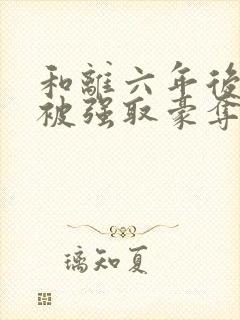 和離六年後
被强取豪奪
璃知夏